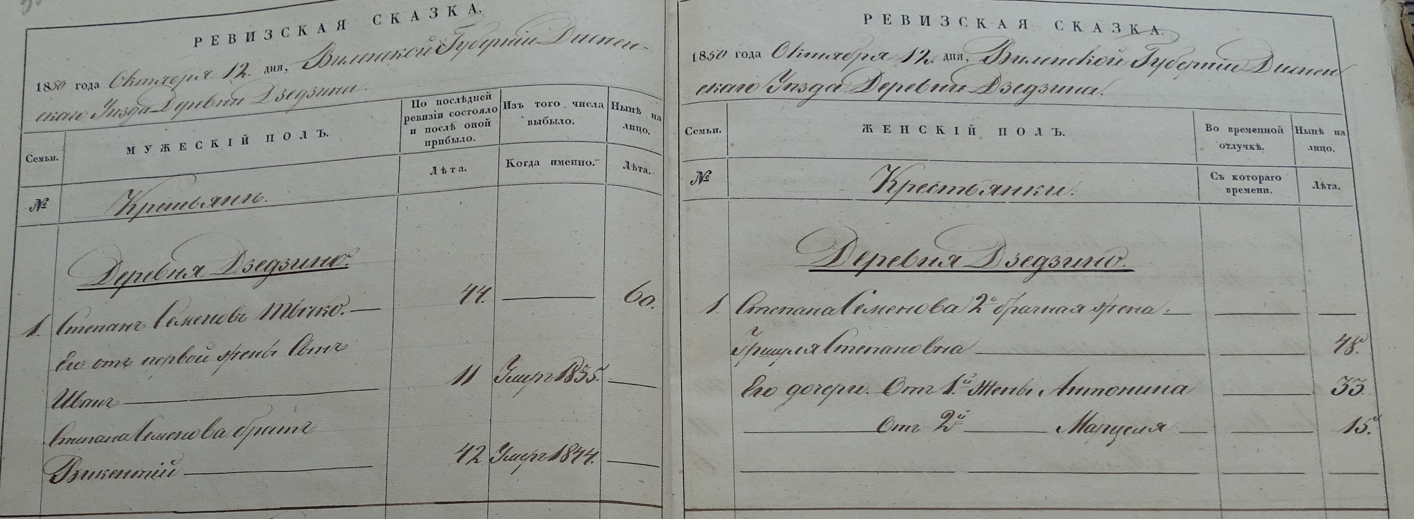 РЕВИЗСКАЯ СКАЗКА.
1850 года Октября 12. дня, Виленской Губерніи Диснен-
скаго Уѣзда Деревни Дзедзина.
Семьи.
МУЖЕСКІЙ ПОЛЪ.
По послѣдней
ревизіи состояло
и послѣ оной
прибыло.
Изъ того числа
выбыло.
Нынѣ на
лицо.
Лѣта.
Когда именно.
Лѣта.
№
Крестьянъ.
Деревня Дзедзино.
1. Степанъ Семеновъ 44. 60.
Его отъ первой жены Сынъ
Иванъ 11 Умеръ
Степана Семенова братъ
Викентій 42 Умеръ 1844.
РЕВИЗСКАЯ СКАЗКА.
1850 года Октября 12. дня, Виленской Губерніи Диснен-
скаго Уѣзда Деревни Дзедзина.
Семьи.
ЖЕНСКІЙ ПОЛЪ.
Во временной
отлучкѣ.
Нынѣ на
лицо.
№
Крестьянки.
Съ котораго
времени.
Лѣта.
Деревня Дзедзино.
1 Степана Семенова 2о брачная жена.
Степановна 48.
Его дочери. Отъ 1й Жены Антонина 33
Отъ 2й 15.